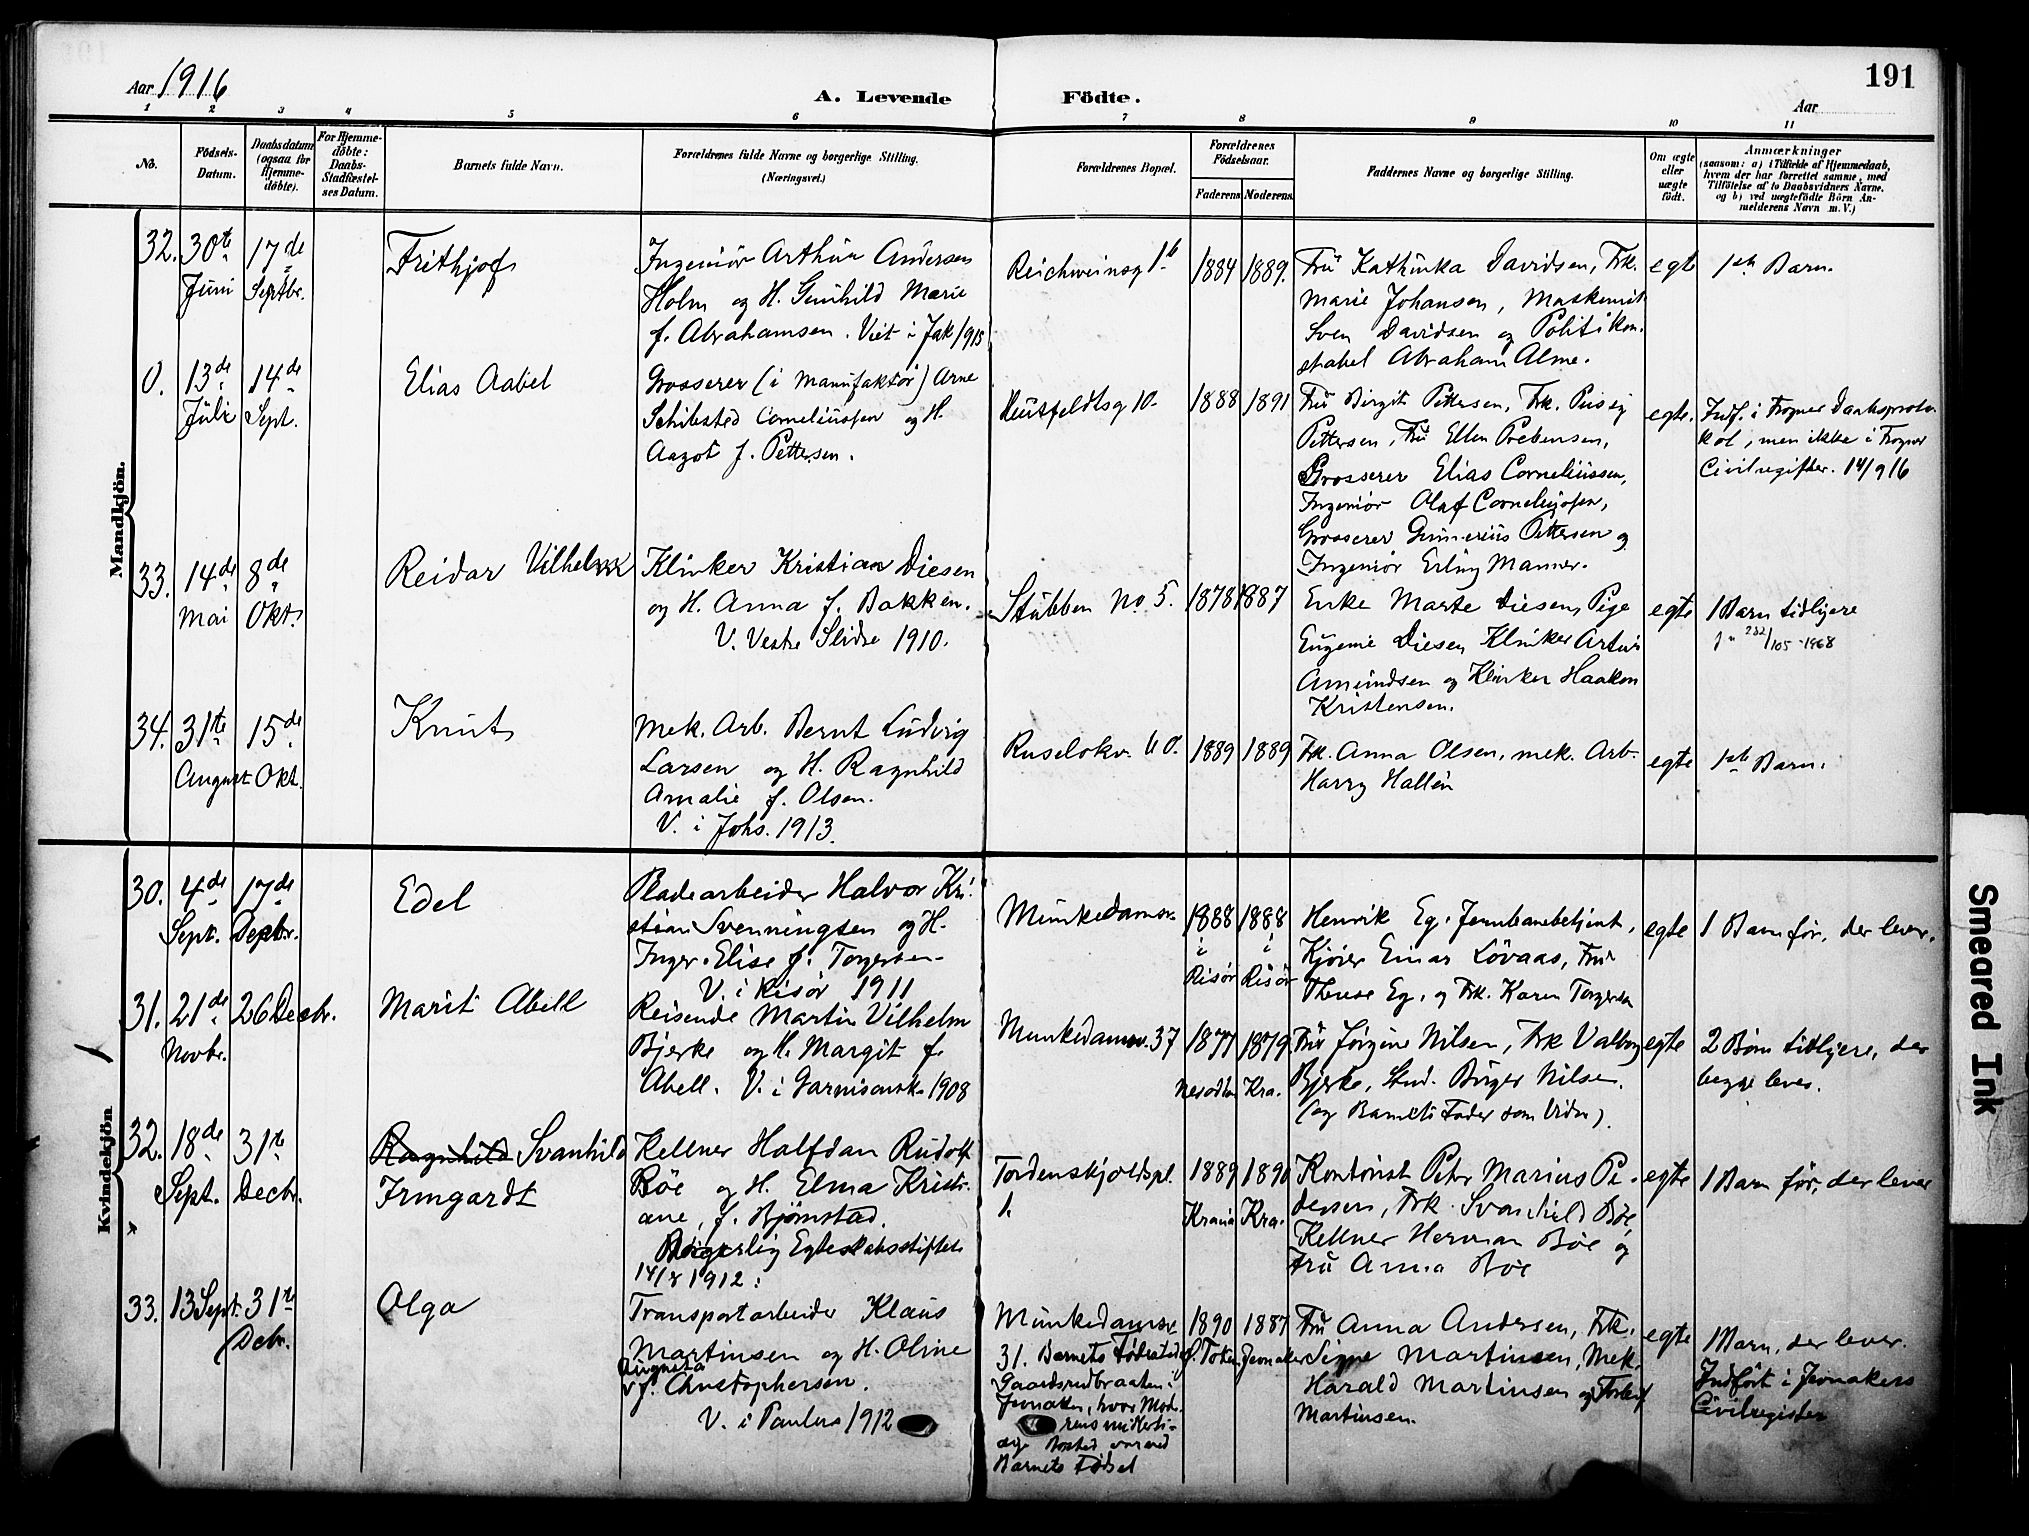 191
Aar 1916
A. Levende Födte.
Aar
1 2 3 4 5 6 7 8 9 10 11
No.
Födsels-
Datum.
Daabsdatum
(ogsaa for
Hjemme-
döbte).
For Hjemme-
döbte:
Daabs-
Stadfæstel-
ses Datum.
Barnets fulde Navn.
Forældrenes fulde Navne og borgerlige Stilling.
(Næringsvei.)
Forældrenes Bopæl.
Forældrenes
Födselsaar.
Faderens Moderens
Faddernes Navne og borgerlige Stilling.
Om ægte
eller
uægte
födt.
Anmærkninger
(saasom: a) i Tilfælde af Hjemmedaab,
hvem der har forrettet samme, med
Tilföielse af to Daabsvidners Navne.
og b) ved uægtefödte Börn An-
melderens Navn m. V.)
Mandkjön.
32. 30te Juni
17de Septbr.
Frithjof
Ingeniör Arthur Andersen
Holm og H. Gunhild Marie
f. Abrahamsen. Viet i Jak 1915
Reichweinsg 1b
1884 1889.
Fru Kathinka Davidsen, Frk.
Marie Johansen, Maskinist
Sven Davidsen og Politikon-
stabel Abraham Alme.
egte
1ste Barn.
0. 13de Juli
14de Sept.
Elias Aabel
Grosserer (i Manufaktur) Arne
Schibsted Corneliussen og H.
Aagot f. Pettersen.
Huitfeldtsg 10.
1888 1891
Fru Birgit Pettersen, Frk.
Pettersen, Fru Ellen Prebensen,
Grosserer Elias Corneliussen,
Ingeniör Olaf Corneliussen,
Grosserer Gunnerius Pettersen og
Ingeniör Erling Manner.
egte.
Indf. i Frogner Daabsproto-
kol, men ikke i Frogner
Civilregister. 14/9 16
33. 14de Mai
8de Okt.
Reidar Vilhelm
Klinker Kristian Diesen
og H. Anna f. Bakken.
V. Vestre Slidre 1910.
Stubben No 5.
1878 1887
Enke Marte Diesen, Pige
Eugenie Diesen Klinker Artur
Amundsen og Klinker Haakon
Kristensen.
egte
1 Barn tidligere
34. 31te August
15de Okt.
Knut
Mek. Arb. Bernt Ludvig
Larsen og H. Ragnhild
Amalie f. Olsen.
V. i Johs. 1913.
Ruselökv. 60.
1889 1889
Frk. Anna Olsen, mek. Arb.
Harry Hallén
egte
1ste Barn.
Kvindekjön
30. 4de Sept.
17de Septbr.
Edel
Pladearbeider Halvor Kri-
stian Svenningsen og H.
Inger Elise f. Torgersen
V. i Risör 1911
Munkedamsv.
1888 i Risör
1888 i Risör
Henrik Eg, Jernbanebetjent,
Kjörer Einar Lövaas, Fru
Therese Eg, og Frk. Karen Torgersen
egte
1 Barn för, der lever.
31. 21de Novbr.
26 Decbr.
Marit Abell
Reisende Martin Vilhelm
Bjerke og H. Margit f.
Abell. V. i Garnisonsk. 1908
Munkedamsv. 37
1877 Nesodden
1879 Kra.
Fru Jörgine Nilsen, Frk Valborg
Bjerke, Stud. Birger Nilsen.
(og Barnets Fader som Vidne).
egte
2 Börn tidligere, der
begge lever.
32. 18de Sept.
31te Decbr.
Ragnhild Svanhild
Irmgardt
Kellner Halfdan Rudolf
Böe og H. Elma Kristi-
ane, f. Björnstad.
Borgerlig Egteskabsstiftet
14/8 1912.
Tordenskjoldspl.
1.
1889 Krania
1890 Kra.
Kontorist Peter Marius Pe-
dersen, Frk. Svanhild Böe
Kellner Herman Böe og
Fru Anna Böe
egte
1 Barn för, der lever
33. 13 Sept.
31te Dcbr.
Olga
Transportarbeider Klaus
Martinsen og H. Oline
Augusta
f. Christophersen.
V. i Paulus 1912
Munkedamsv.
31. Barnets Födested
Gaardsrudbraaten i
Jevnaker, hvor Mode-
rens midlerti-
dige Bosted var ved
Barnets Födsel
1890
1887 Jevnaker
Fru Anna Andersen, Frk.
Signe Martinsen, Mek.
Harald Martinsen og
Martinsen.
egte
1 Barn, der lever.
Indfört i Jevnakers
Civilregister
Smeared Ink